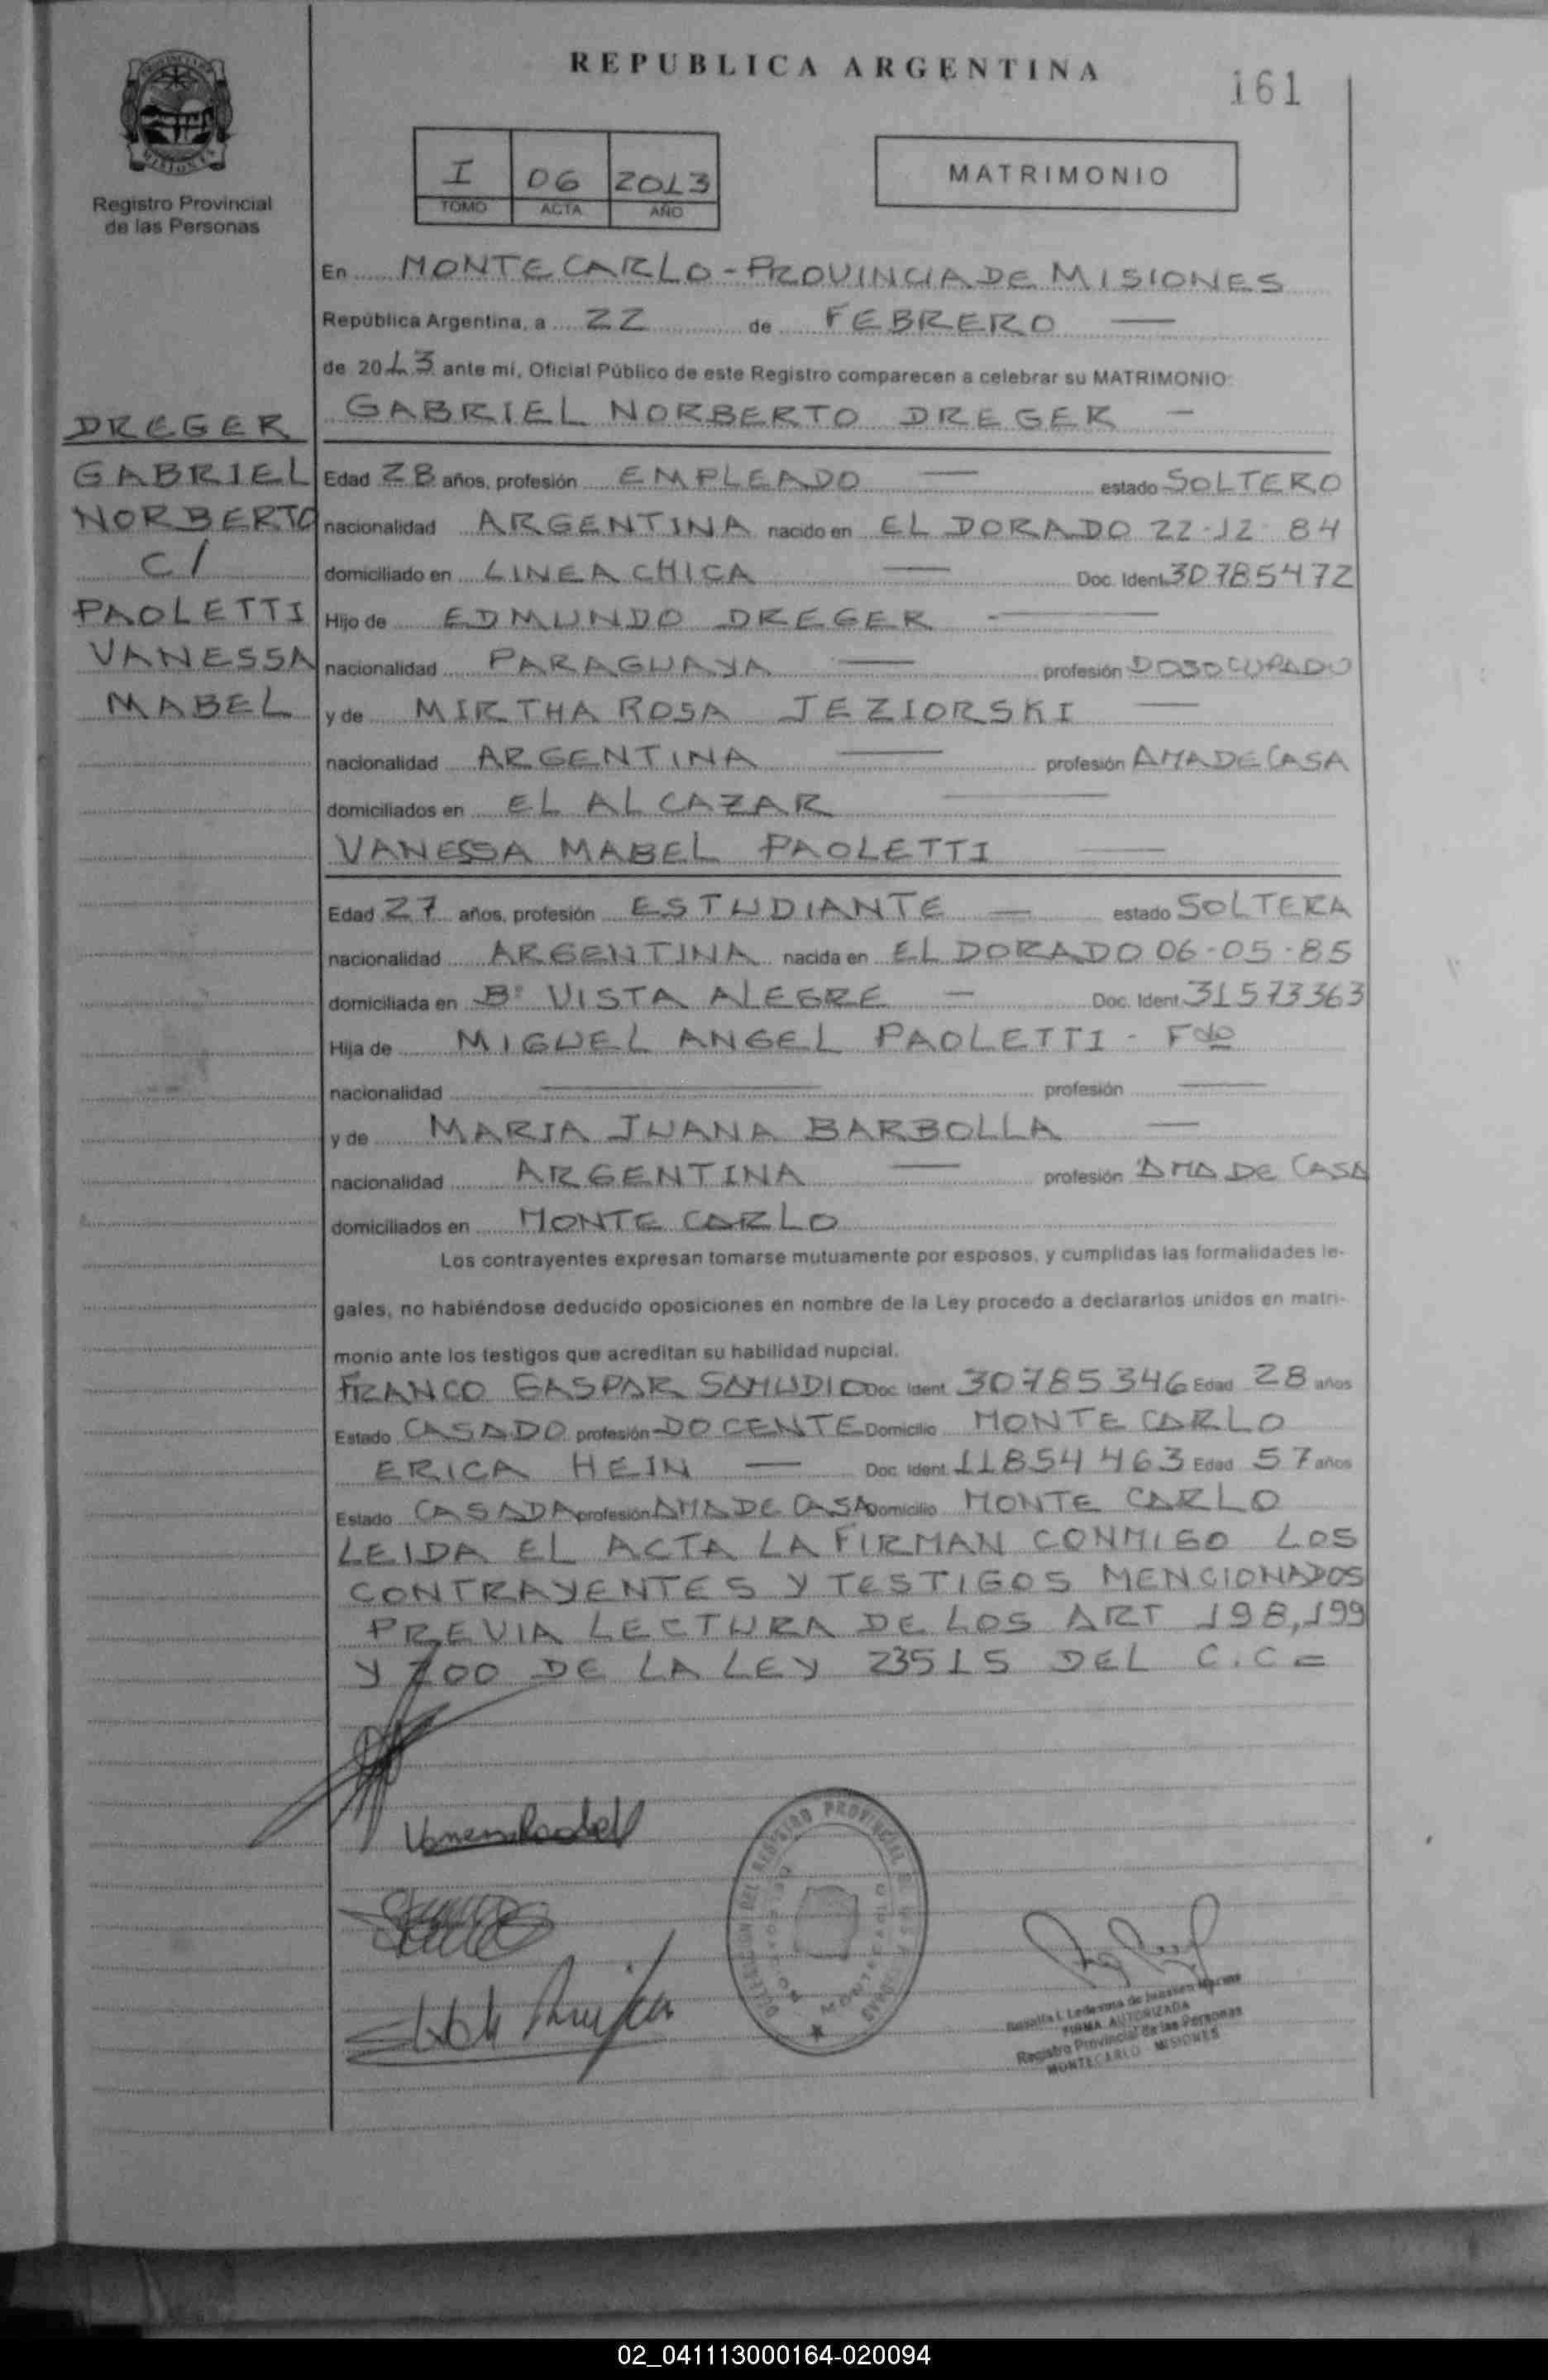 REPUBLICA ARGENTINA
161
MISIONES
Registro Provincial
de las Personas
I 06 2013
TOMO ACTA AÑO
MATRIMONIO
En MONTECARLO - PROVINCIA DE MISIONES
República Argentina, a 22 de FEBRERO —
de 2013 ante mí, Oficial Público de este Registro comparecen a celebrar su MATRIMONIO:
GABRIEL NORBERTO DREGER —
DREGER
GABRIEL
NORBERTO
C/
PAOLETTI
VANESSA
MABEL
Edad 28 años, profesión EMPLEADO — estado SOLTERO
nacionalidad ARGENTINA nacido en EL DORADO 22-12-84
domiciliado en LINEA CHICA — Doc. Ident. 30785472
Hijo de EDMUNDO DREGER —
nacionalidad PARAGUAYA — profesión DOSOCUPADO
y de MIRTHA ROSA JEZIORSKI —
nacionalidad ARGENTINA — profesión AMA DE CASA
domiciliados en EL ALCAZAR —
VANESSA MABEL PAOLETTI —
Edad 27 años, profesión ESTUDIANTE — estado SOLTERA
nacionalidad ARGENTINA nacida en EL DORADO 06-05-85
domiciliada en B° VISTA ALEGRE — Doc. Ident. 31573363
Hija de MIGUEL ANGEL PAOLETTI - Fdo
nacionalidad — profesión —
y de MARIA JUANA BARBOLLA —
nacionalidad ARGENTINA — profesión AMA DE CASA
domiciliados en MONTE CARLO
Los contrayentes expresan tomarse mutuamente por esposos, y cumplidas las formalidades le-
gales, no habiéndose deducido oposiciones en nombre de la Ley procedo a declararlos unidos en matri-
monio ante los testigos que acreditan su habilidad nupcial.
FRANCO GASPAR SAMUDIO Doc. Ident. 30785346 Edad 28 años
Estado CASADO profesión DOCENTE Domicilio MONTE CARLO
ERICA HEIN — Doc. Ident. 11854463 Edad 57 años
Estado CASADA profesión AMA DE CASA Domicilio MONTE CARLO
LEIDA EL ACTA LA FIRMAN CONMIGO LOS
CONTRAYENTES Y TESTIGOS MENCIONADOS
PREVIA LECTURA DE LOS ART 198,199
Y 200 DE LA LEY 23515 DEL C.C=
DELEGACION DEL REGISTRO PROVINCIAL
MONTECARLO
Ledesma de
FIRMA AUTORIZADA
Registro Provincial de las Personas
MONTECARLO MISIONES
02_041113000164-020094